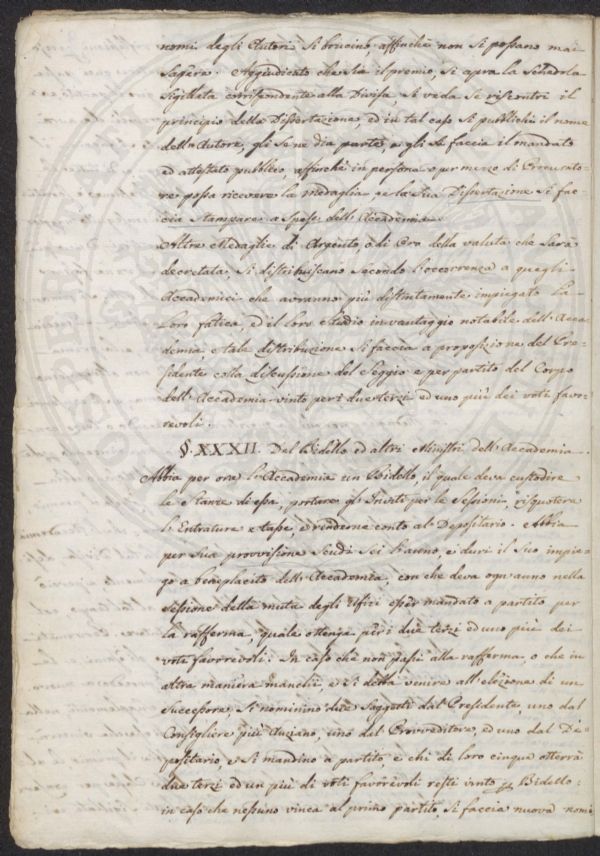 nomi degli Autori si brucino affinchè non si possano mai
sapere. Aggiudicato che sia il premio, si apra la Schedola
sigillata corrispondente alla Divisa, si veda se riscontri il
principio della Dissertazione, ed in tal caso si pubblichi il nome
dell'Autore, gli se ne dia parte, e gli si faccia il mandato
ed attestato pubblico, affinchè in persona o per mezzo di Procurato-
re possa ricevere la medaglia, e la sua Dissertazione si fac-
cia stampare a spese dell'Accademia.
Altre Medaglie di Argento, o di Oro della valuta che sarà
decretata, si distribuiscano secondo l'occorrenza a quegli
Accademici che avranno più distintamente impiegato la
loro fatica, ed il loro studio in vantaggio notabile dell'Acca-
demia, e tale distribuzione si faccia a proposizione del Pre-
sidente colla discussione del Seggio e per partito del Corpo
dell'Accademia vinto per i due terzi ed uno più dei voti favor-
revoli.
§. XXXII. Del Bidello ed altri Ministri dell'Accademia.
Abbia per ora l'Accademia un Bidello, il quale deva custodire
le Stanze di essa, portare gl'Inviti per le Sessioni, risquotere
l'Entrature e tasse, e renderne conto al Depositario. Abbia
per sua provvisione Scudi Sei l'anno, e duri il suo impie-
go a beneplacito dell'Accademia, con che deva ogn'anno nella
Sessione della muta degli Ufizi esser mandato a partito per
la rafferma, quale ottenga per i due terzi ed uno più dei
voti favorevoli: In caso che non passi alla rafferma, o che in
altra maniera manchi, e si debba venire all'elezione di un
Successore, si nominino due Soggetti dal Presidente, uno dal
Consigliere più Anziano, uno dal Provveditore, ed uno dal De-
positario, e si mandino a partito, e chi di loro cinque otterrà
due terzi ed un più di voti favorevoli resti vinto per Bidello:
in caso che nessuno vinca al primo partito si faccia nuova nomi